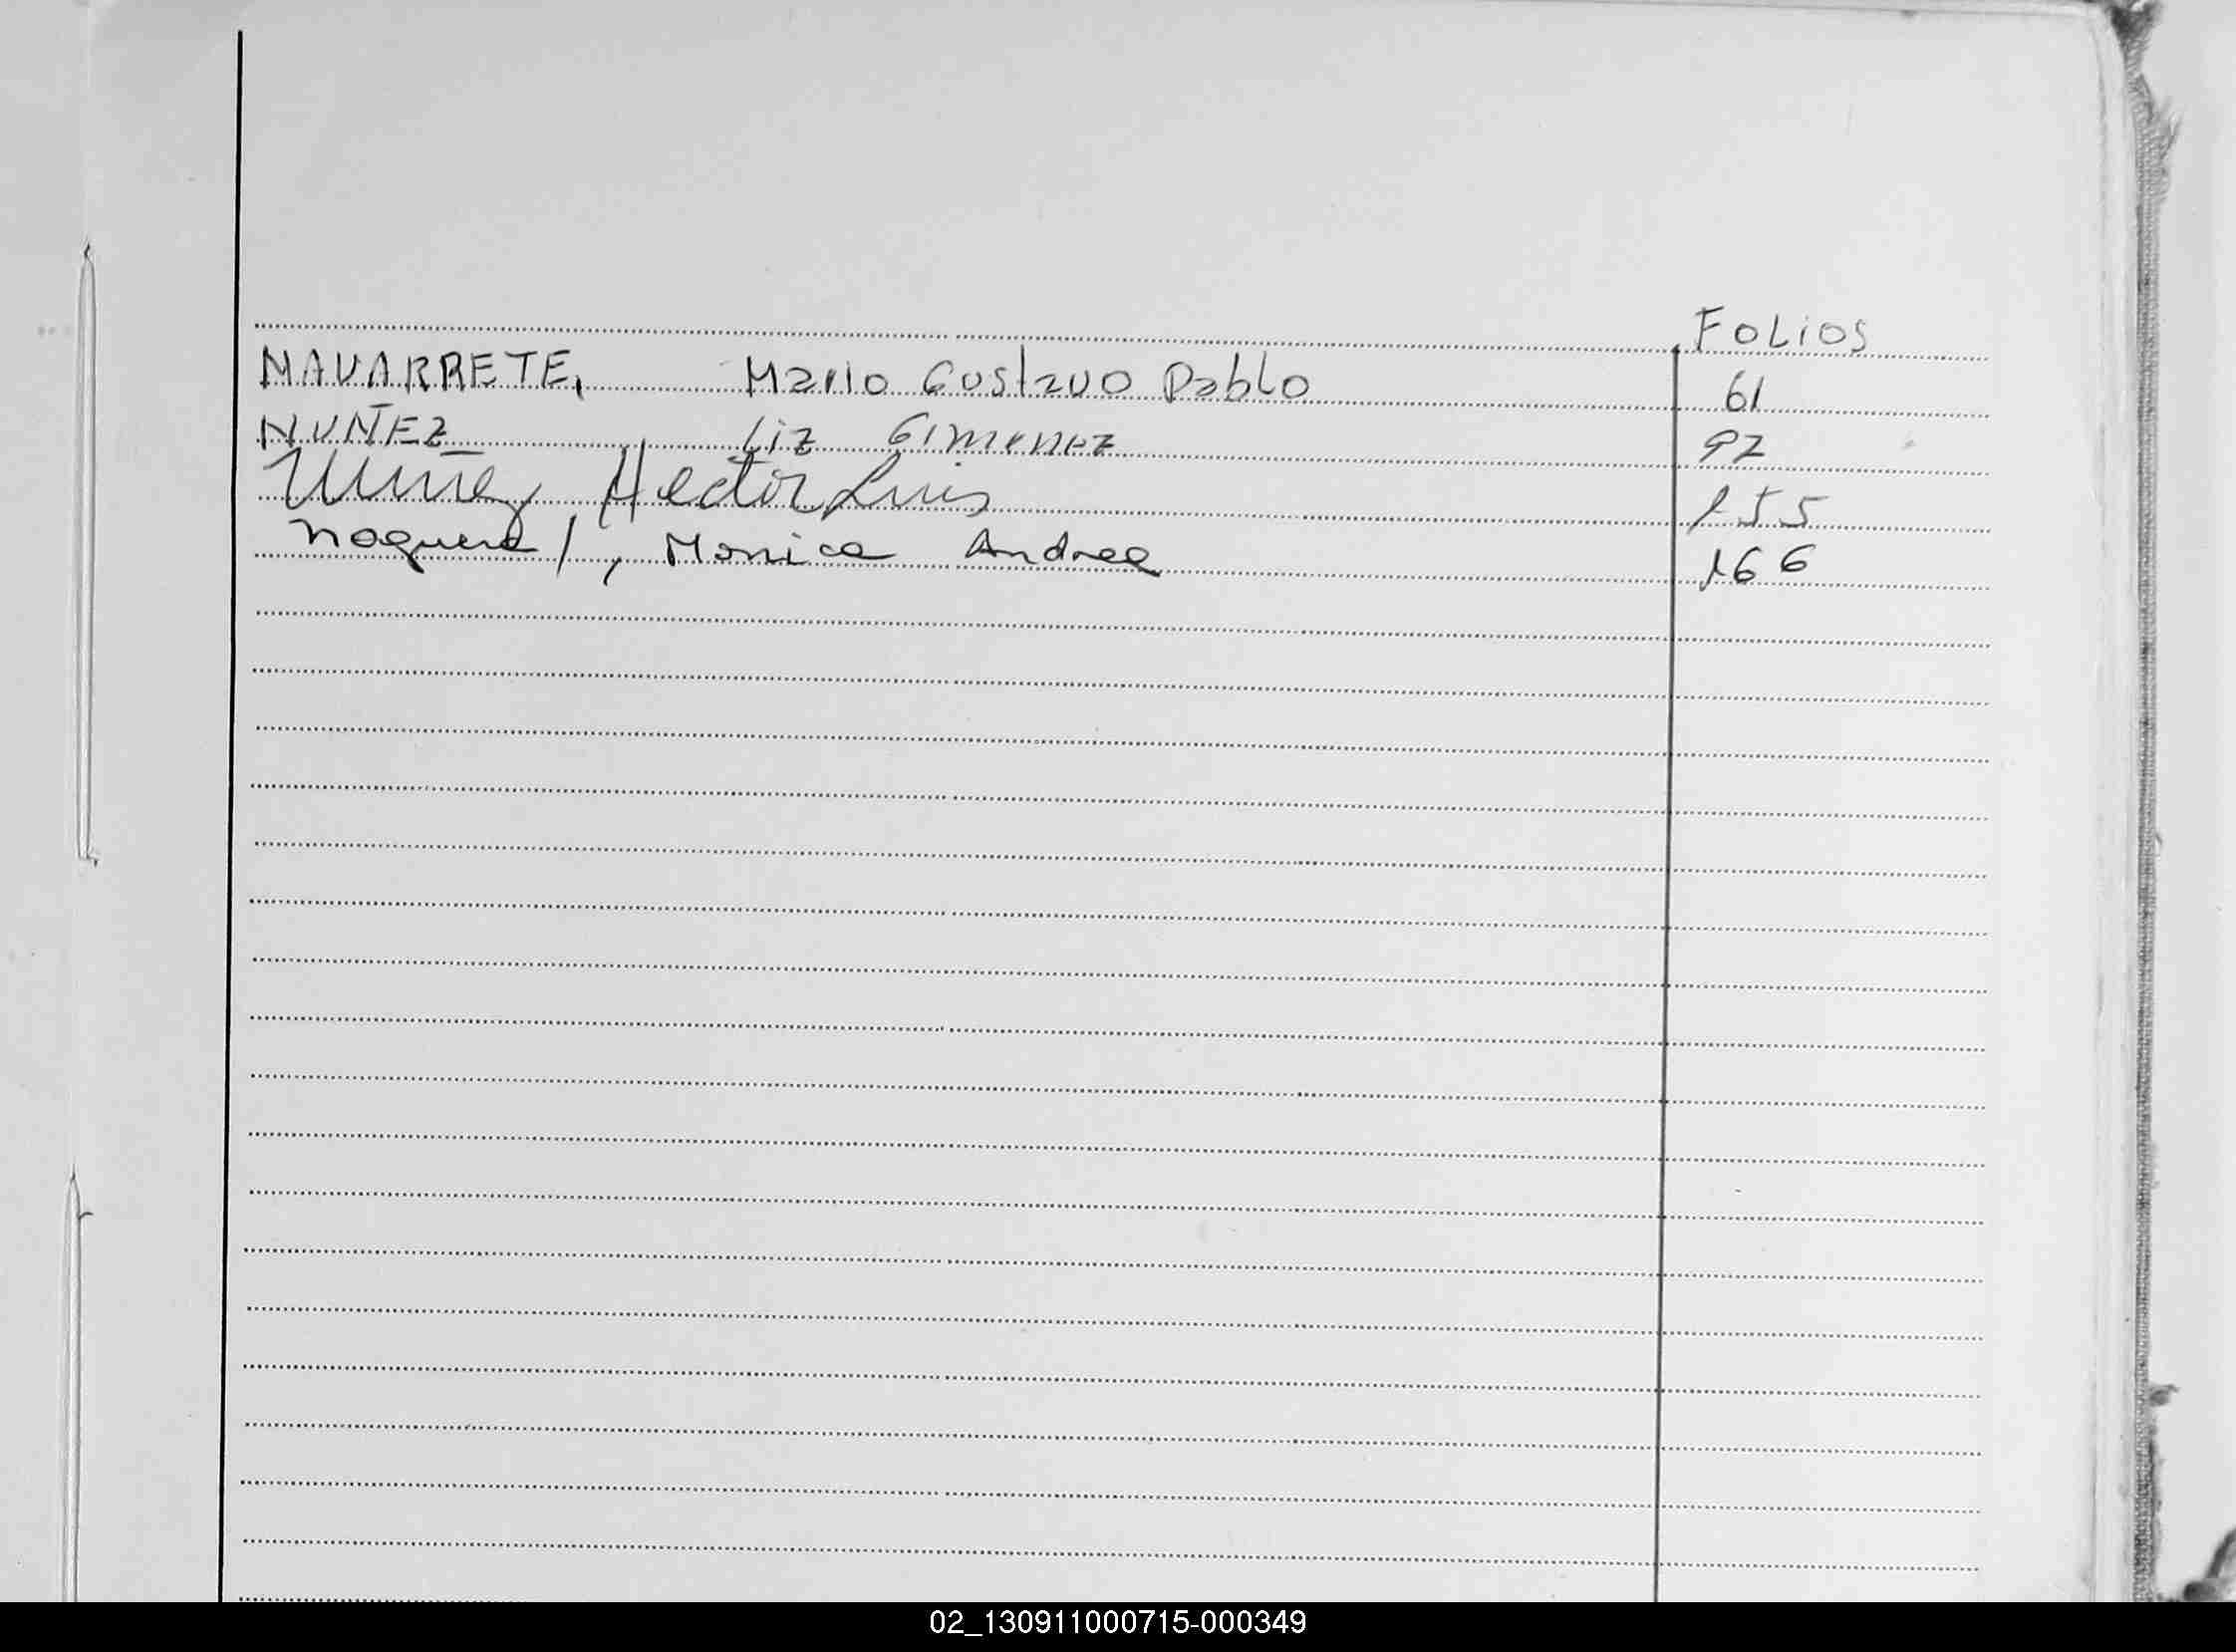 FOLIOS
NAVARRETE, Mario Gustavo Pablo 61
NUÑEZ Liz Gimenez 92
Nuñez Hector Luis 155
Noguera/, Monica Andrea 166
02_130911000715-000349